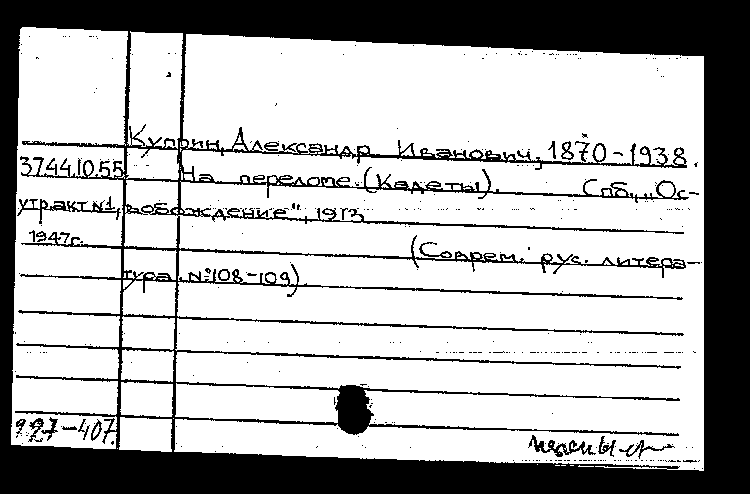 Куприн, Александр Иванович, 1870-1938.
3744.10.55 На переломе. (Кадеты). Спб., „Ос-
утр.акт №1, вобождение", 1913
1947г. (Соврем. рус. литера-
тура. №108-109).
927-407.